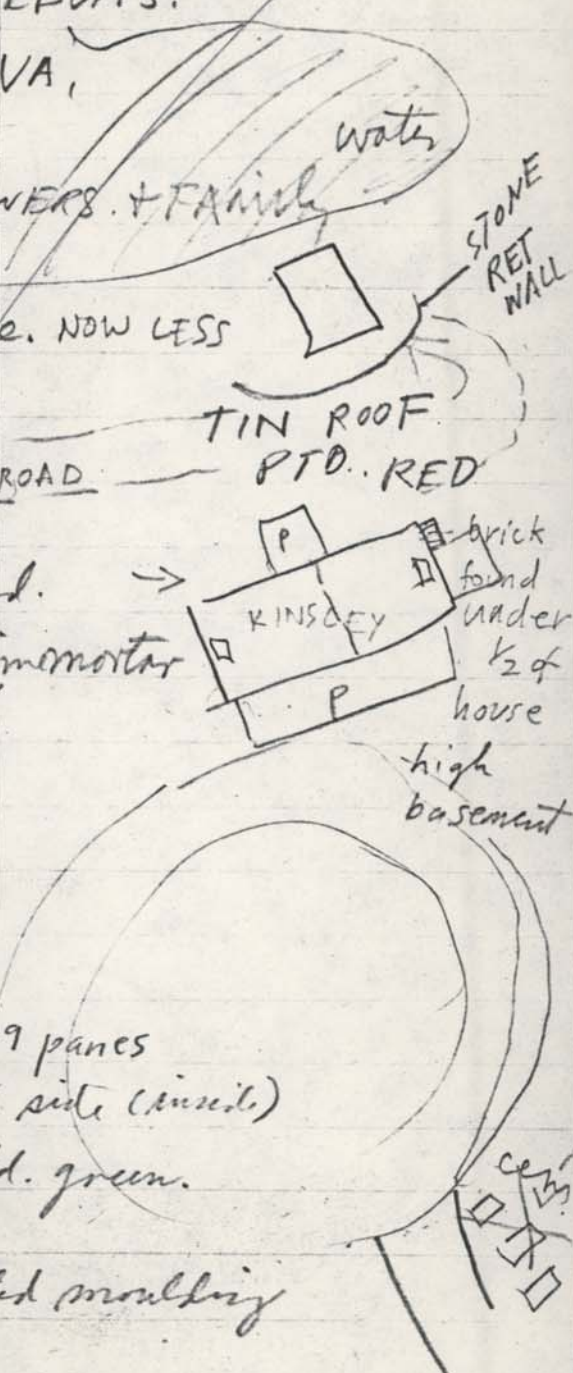 VA,
water
WERS. + FAmily
STONE
RET
WALL
e. NOW LESS
TIN ROOF
PTD.. RED
ROAD
P
brick
found
under
1/2 of
house
d.
KINSLEY
P
high
basement
9 panes
side (inside)
d. green.
cem.
ed moulding